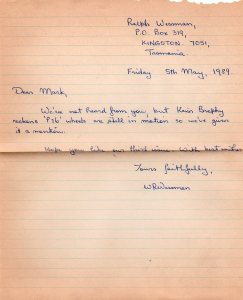 Ralph Wessman,
P.O. Box 319,
KINGSTON. 7051,
Tasmania.
Friday 5th May, 1989.
Dear Mark,
We've not heard from you, but Kevin Brophy
reckons 'P36' wheels are still in motion so we've given
it a mention.
Hope you like our third issue. With best wishes
Yours faithfully,
WRWessman